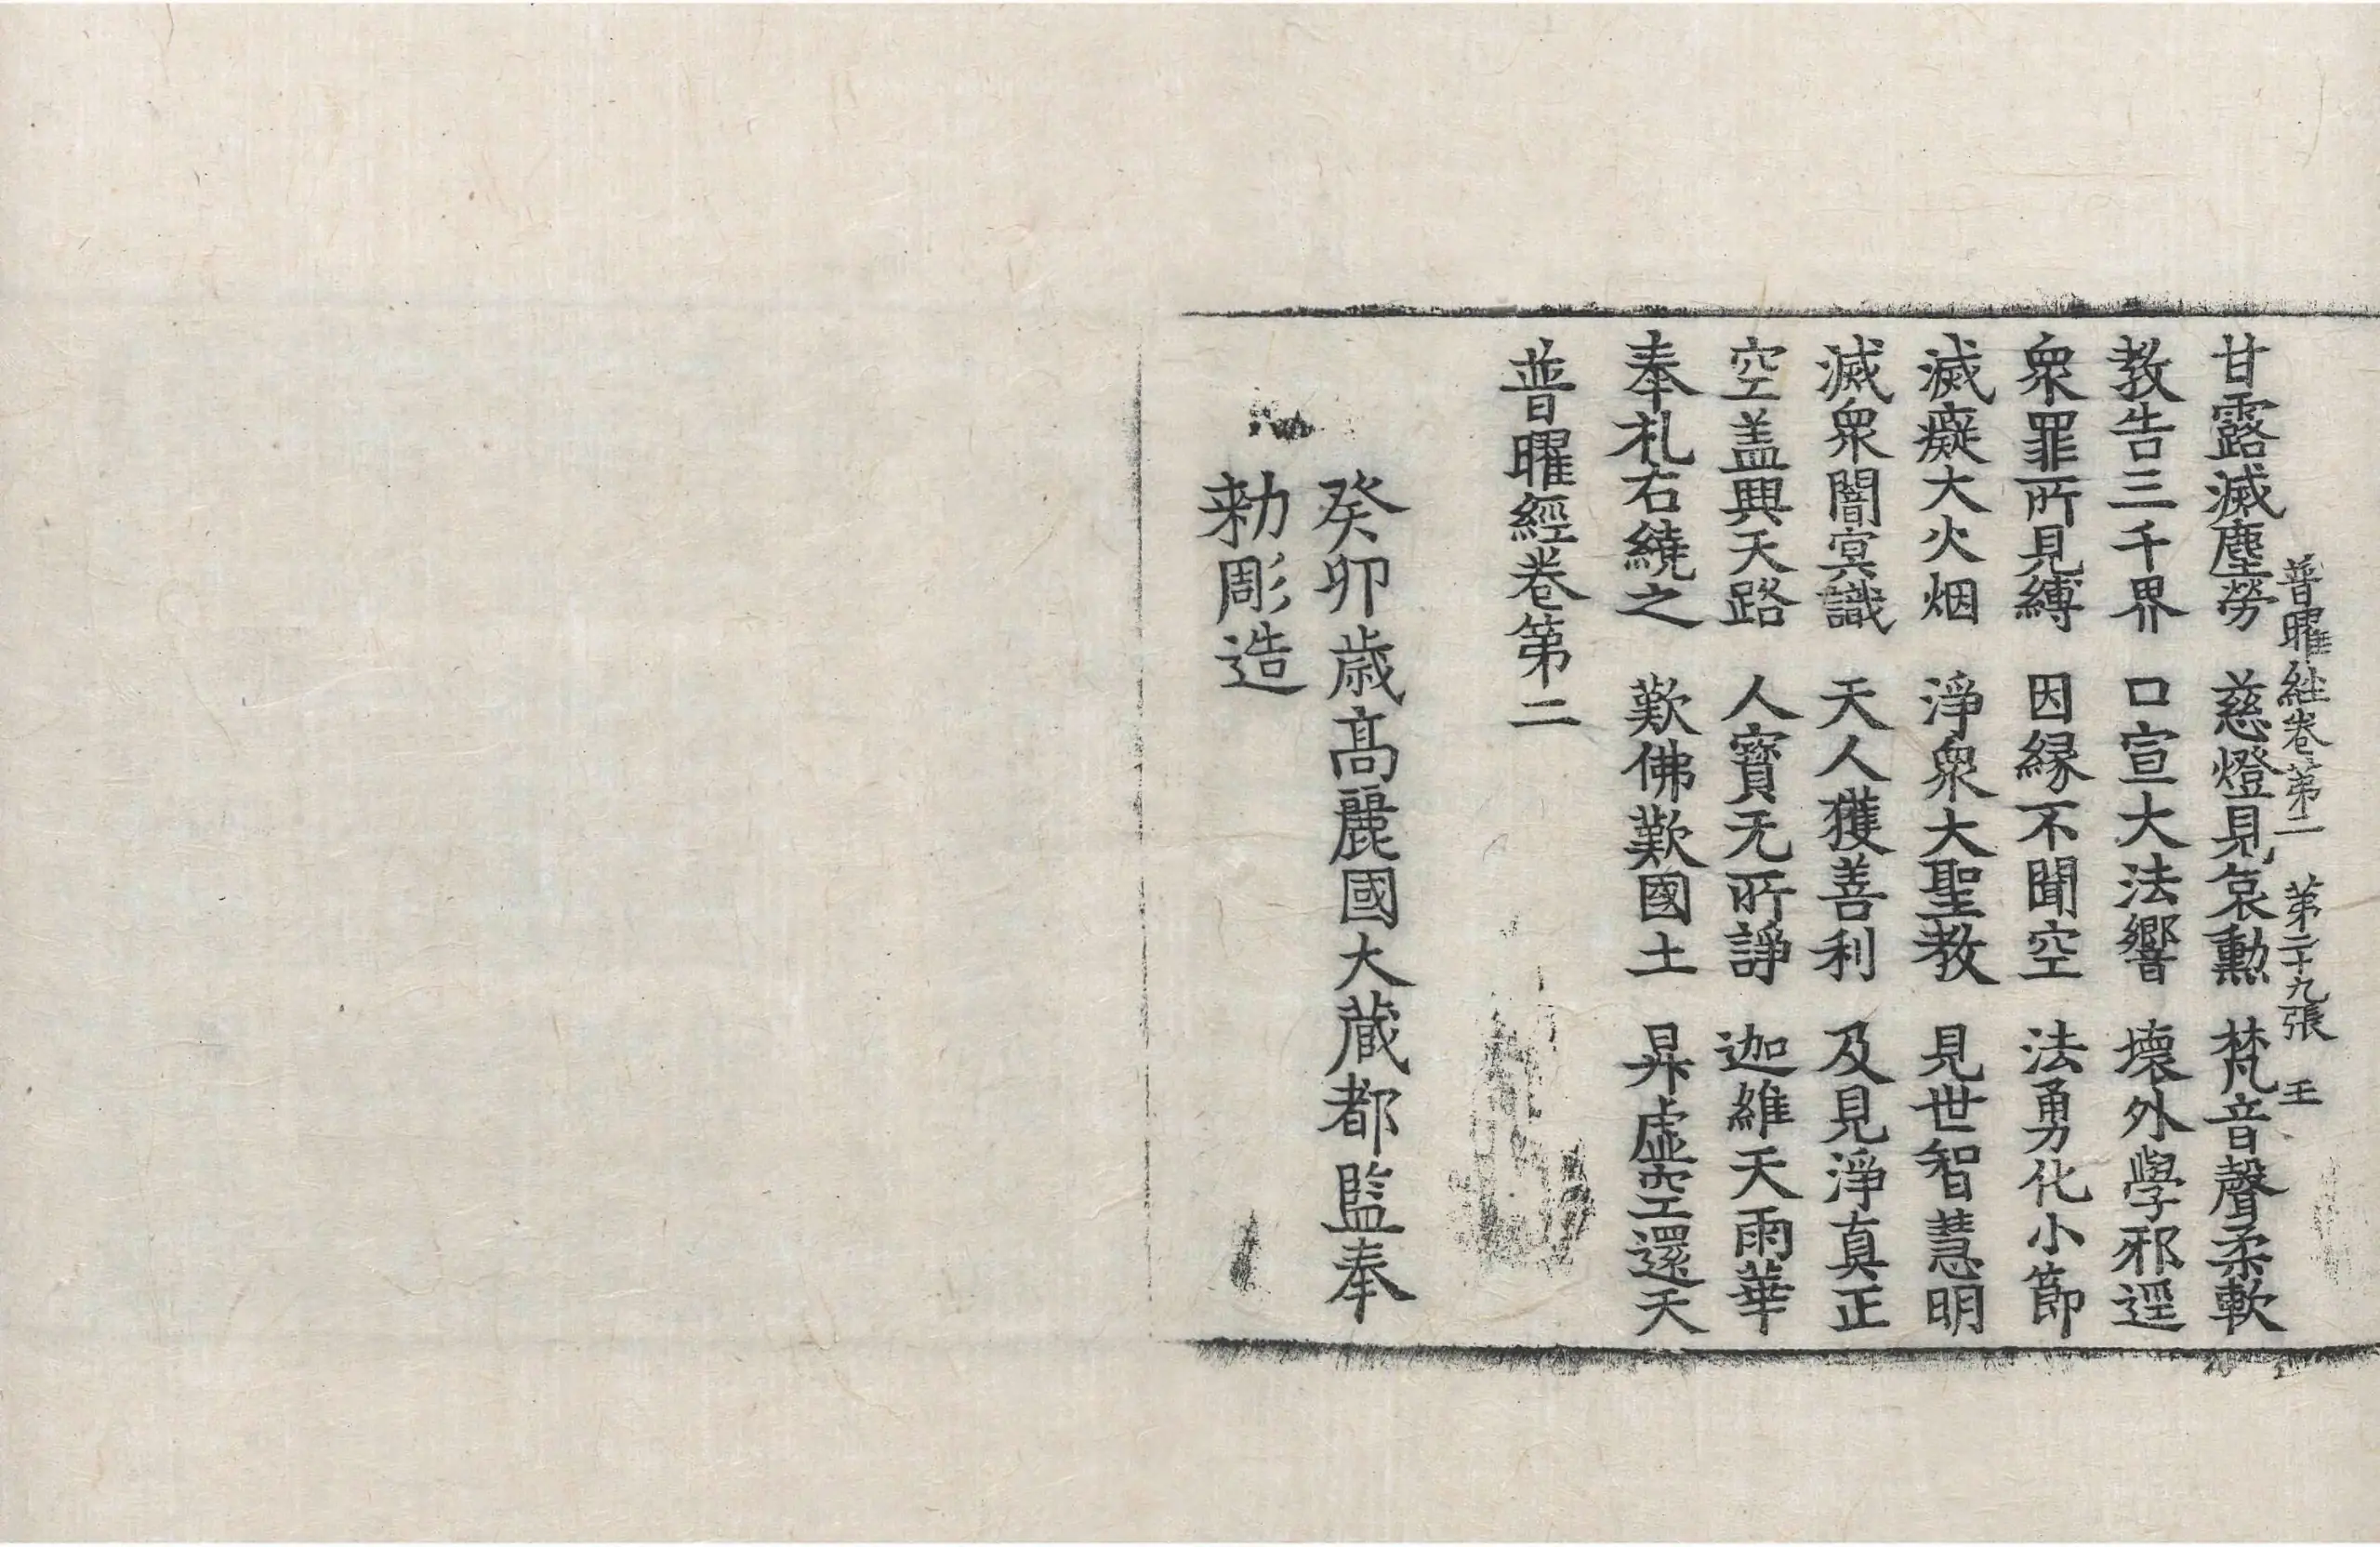 普曜経卷第二 第二十九張 王
甘露滅塵勞 慈燈見哀勲 梵音聲柔軟
教告三千界 口宣大法響 壞外學邪逕
衆罪所見縛 因縁不聞空 法勇化小節
滅癡大火烟 淨衆大聖教 見世智慧明
滅衆闇冥識 天人獲善利 及見淨真正
空盖興天路 人寶无所諍 迦維天雨華
奉礼右繞之 歎佛歎國土 昇虛空還天
普曜經卷第二
癸卯歳高麗國大藏都監奉
勑彫造